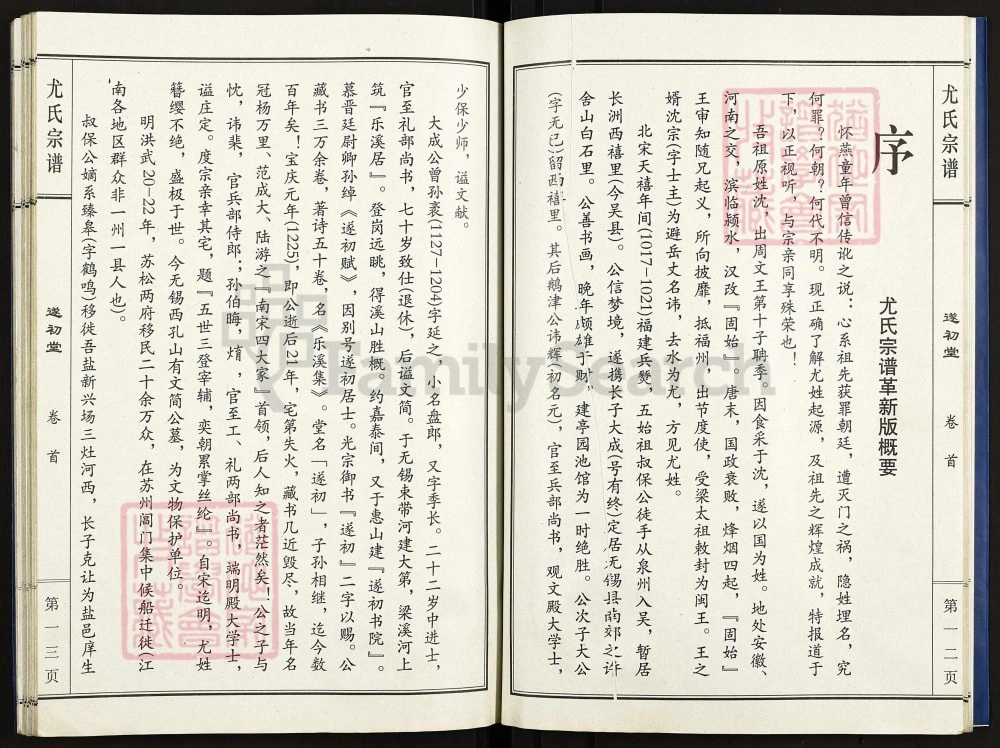 尤氏宗谱
遂初堂
卷首
第一二页
序
尤氏宗谱革新版概要
怀燕童年曾信传讹之说：心系祖先获罪朝廷，遭灭门之祸，隐姓埋名，究
何罪？何朝？何代不明。现正确了解尤姓起源，及祖先之辉煌成就，特报道于
下，以正视听，与宗亲同享殊荣也！
吾祖原姓沈，出周文王第十子聃季。因食采于沈，遂以国为姓。地处安徽、
河南之交，滨临颍水，汉改『固始』。唐末，国政衰败，烽烟四起，『固始』
王审知随兄起义，所向披靡，抵福州，出节度使，受梁太祖敕封为闽王。王之
婿沈宗(字士主)为避岳丈名讳，去水为尤，方见尤姓。
北宋天禧年间(1017—1021)福建兵燹，五始祖叔保公徒手从泉州入吴，暂居
长洲西禧里(今吴县)。公信梦境，遂携长子大成(号有终)定居无锡县南郊之许
舍山白石里。公善书画，晚年颇雄于财，建亭园池馆为一时绝胜。公次子大公
(字无已)留西禧里。其后鹅津公讳辉(初名元)，官至兵部尚书，观文殿大学士，
少保少师，谥文献。
大成公曾孙袤(1127—1204)字延之，小名盘郎，又字季长。二十二岁中进士，
官至礼部尚书，七十岁致仕(退休)，后谥文简。于无锡束带河建大第，梁溪河上
筑『乐溪居』。登岗远眺，得溪山胜概。约嘉泰间，又于惠山建『遂初书院』。
慕晋廷尉卿孙绰《遂初赋》，因别号遂初居士。光宗御书『遂初』二字以赐。公
藏书三万余卷，著诗五十卷，名《乐溪集》。堂名「遂初」，子孙相继，迄今数
百年矣！宝庆元年(1225)，即公逝后21年，宅第失火，藏书几近毁尽，故当年名
冠杨万里、范成大、陆游之『南宋四大家』首领，后人知之者茫然矣！公之子与
忱，讳棐，官兵部侍郎；孙伯晦，焴，官至工、礼两部尚书，端明殿大学士，
谥庄定。度宗亲幸其宅，题『五世三登宰辅，奕朝累掌丝纶』。自宋迄明，尤姓
簪缨不绝，盛极于世。今无锡西孔山有文简公墓，为文物保护单位。
明洪武20—22年，苏松两府移民二十余万众，在苏州阊门集中候船迁徙(江
南各地区群众非一州一县人也)。
叔保公嫡系臻皋(字鹤鸣)移徙吾盐新兴场三灶河西，长子克让为盐邑庠生
尤氏宗谱
遂初堂
卷首
第一三页
FamilySearch